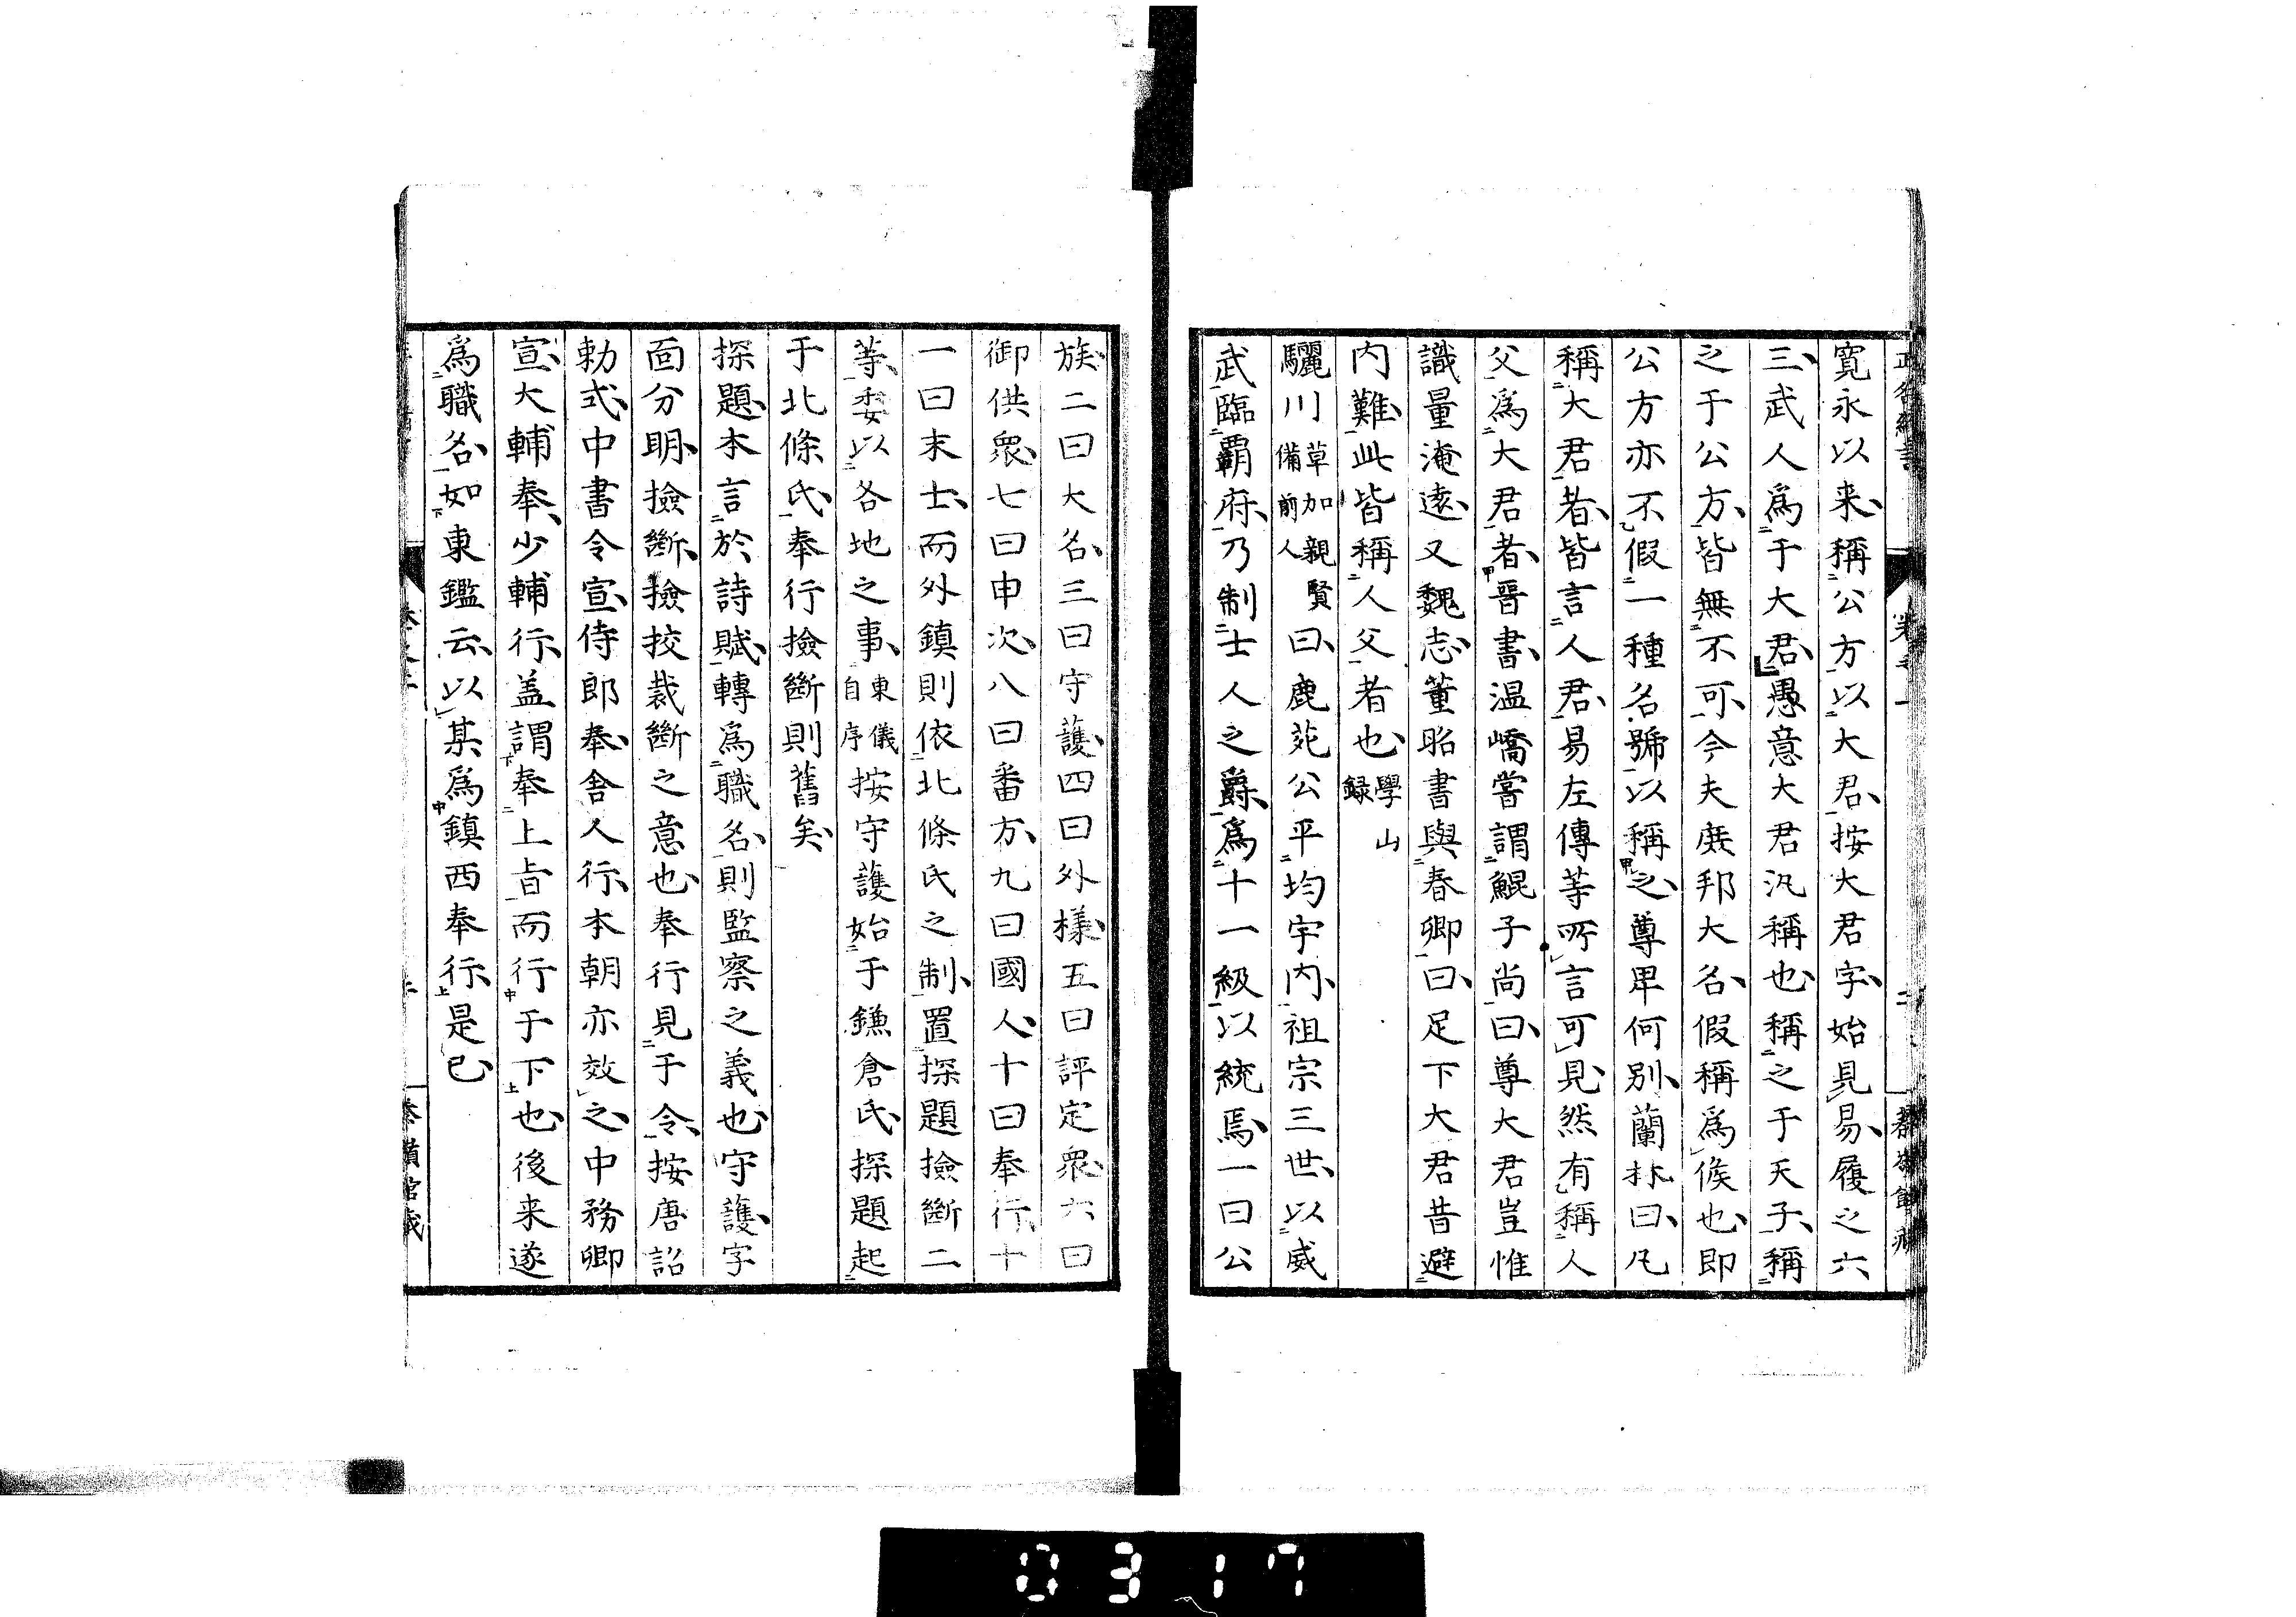 寛永以来、稱公方以大君、按大君字、始見易、履之六
三、武人爲于大君、愚意大君汎稱也、稱之于天子、稱
之于公方、皆無不可、今夫庶邦大名、假稱爲侯也、即
公方亦不假一種名號以稱之、尊卑何別、蘭林曰、凡
稱大君者、皆言人君、易左傳等所言可見、然有稱人
父爲大君者、晋書、温嶠嘗謂鯤子尚曰、尊大君豈惟
識量淹遠、又魏志、董昭書與春卿曰、足下大君昔避
内難、此皆稱人父者也、學山録
驪川草加親賢備前人曰、鹿苑公平均宇内、祖宗三世、以威
武臨覇府、乃制士人之爵、爲十一級以統焉、一曰公
族、二曰大名、三曰守護、四曰外様、五曰評定衆、六曰
御供衆、七曰申次、八曰番方、九曰國人、十曰奉行、十
一曰末士、而外鎮則依北條氏之制、置探題撿斷二
等、委以各地之事、東儀自序按守護始于鎌倉氏、探題起
于北條氏、奉行撿斷則舊矣、
探題、本言於詩賦、轉爲職名、則監察之義也、守護、字
面分明、撿斷、撿挍裁斷之意也、奉行見于令、按唐詔
勅式、中書令宣、侍郎奉、舎人行、本朝亦效之、中務卿
宣、大輔奉、少輔行、盖謂奉上旨而行于下也、後来遂
爲職名、如東鑑云、以某爲鎮西奉行、是已、
0317